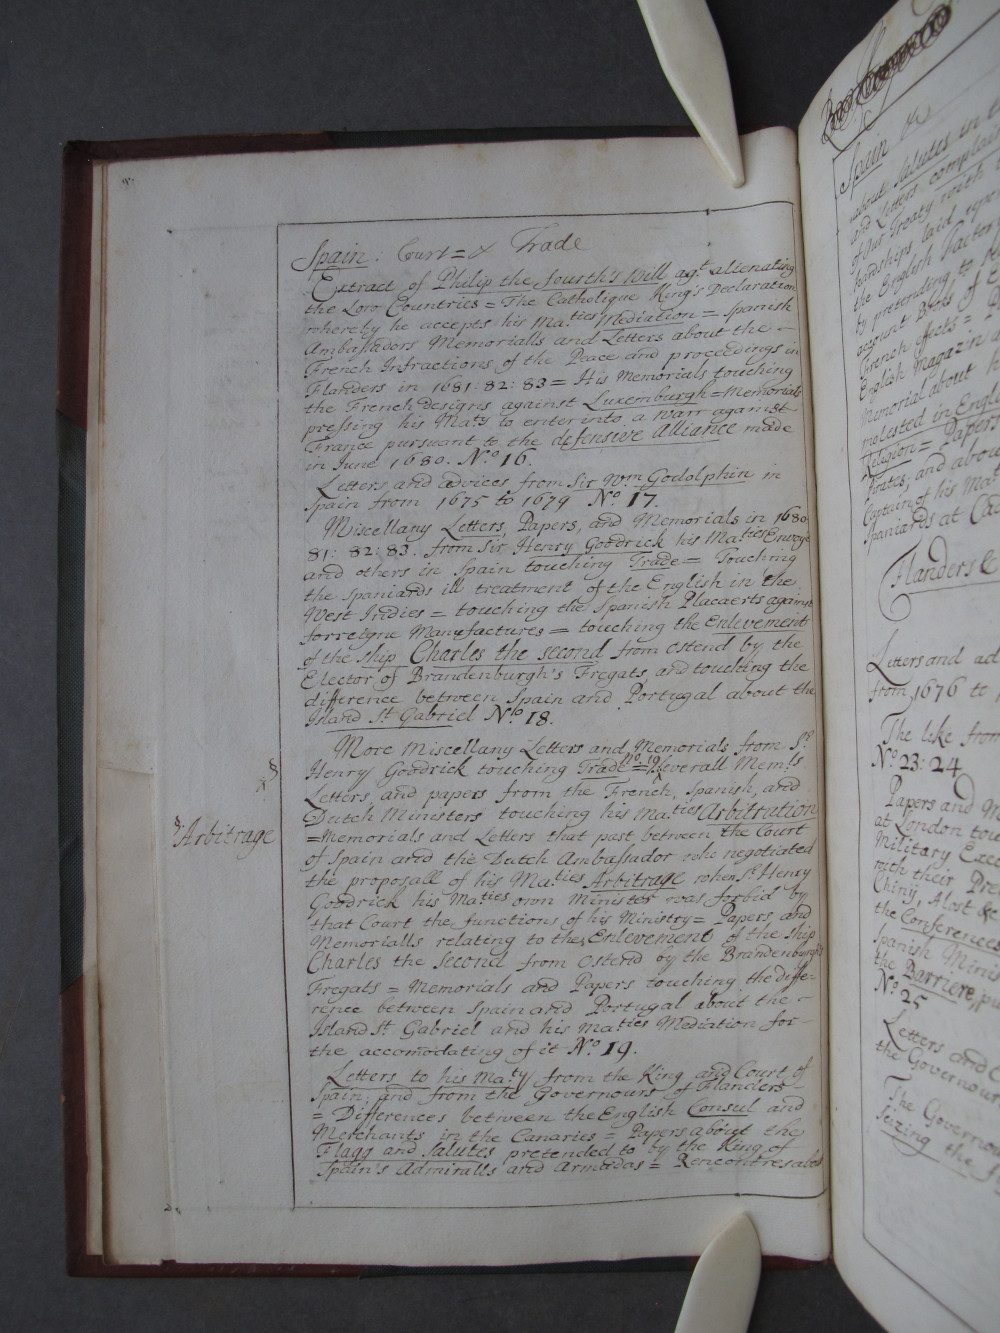 Spain: Court = & Trade
Extract of Philip the fourth's Will agt. alienating
the Low Countries = The Catholique King's Declaration
whereby he accepts his Maties Mediation = Spanish
Ambassadors Memorialls and Letters about the =
French Infractions of the Peace and proceedings in
Flanders in 1681: 82: 83 = His Memorials touching
the French designs against Luxemburgh = Memorials
pressing his Maty to enter into a Warr against
France pursuant to the defensive Alliance made
in June 1680. No. 16.
Letters and advices from Sir Wm Godolphin in
Spain from 1675 to 1679 No 17.
Miscellany Letters, Papers, and Memorials in 1680:
81: 82: 83. from Sir Henry Goodrick his Maties Envoye
and others in Spain touching Trade = Touching
the Spaniards ill treatment of the English in the
West Indies = touching the Spanish Placaerts against
forreigne Manufactures = touching the Enlevement
of the ship Charles the second from Ostend by the
Elector of Brandenburgh's Fregats, and touching the
difference between Spain and Portugal about the
Island St Gabriel No 18.
More Miscellany Letters and Memorials from Sr
Henry Goodrick touching Trade No. 19 = Severall Memls
§
Letters and papers from the French, Spanish, and
Dutch Ministers touching his Maties Arbitration
§ Arbitrage
= Memorials and Letters that past between the Court
of Spain and the Dutch Ambassador who negotiated
the proposall of his Maties Arbitrage when Sr Henry
Goodrick his Maties own Minister was forbid by
that Court the functions of his Ministry = Papers and
Memorialls relating to the Enlevement of the ship
Charles the Second from Ostend by the Brandenburgh's
Fregats = Memorials and Papers touching the diffe-
rence between Spain and Portugal about the =
Island St Gabriel and his Maties Mediation for =
the accomodating of it No. 19.
Letters to his Maty from the King and Court of
Spain, and from the Governours of Flanders =
= Differences between the English Consul and
Merchants in the Canaries = Papers about the
Flagg and Salutes pretended to by the King of
Spain's Admiralls and Armadas = Rencontres about
Spain &
about Salutes in
and Letters complain
of our Treaty with
hardships laid
the English Factor
by pretending to
account Books of
French effects =
English Magazin
Memorial about
molested in Engli
Religion = Papers
Pirates, and about
Captain of his Mat
Spaniards at Cad
Flanders &
Letters and ad
from 1676 to
The like from
No. 23: 24
Papers and M
at London tou
Military Exec
with their Pre
Chiny, Alost &c
the Conferences
Spanish Minis
the Barriere,
No. 25
Letters and
the Governour
The Governou
Seizing the